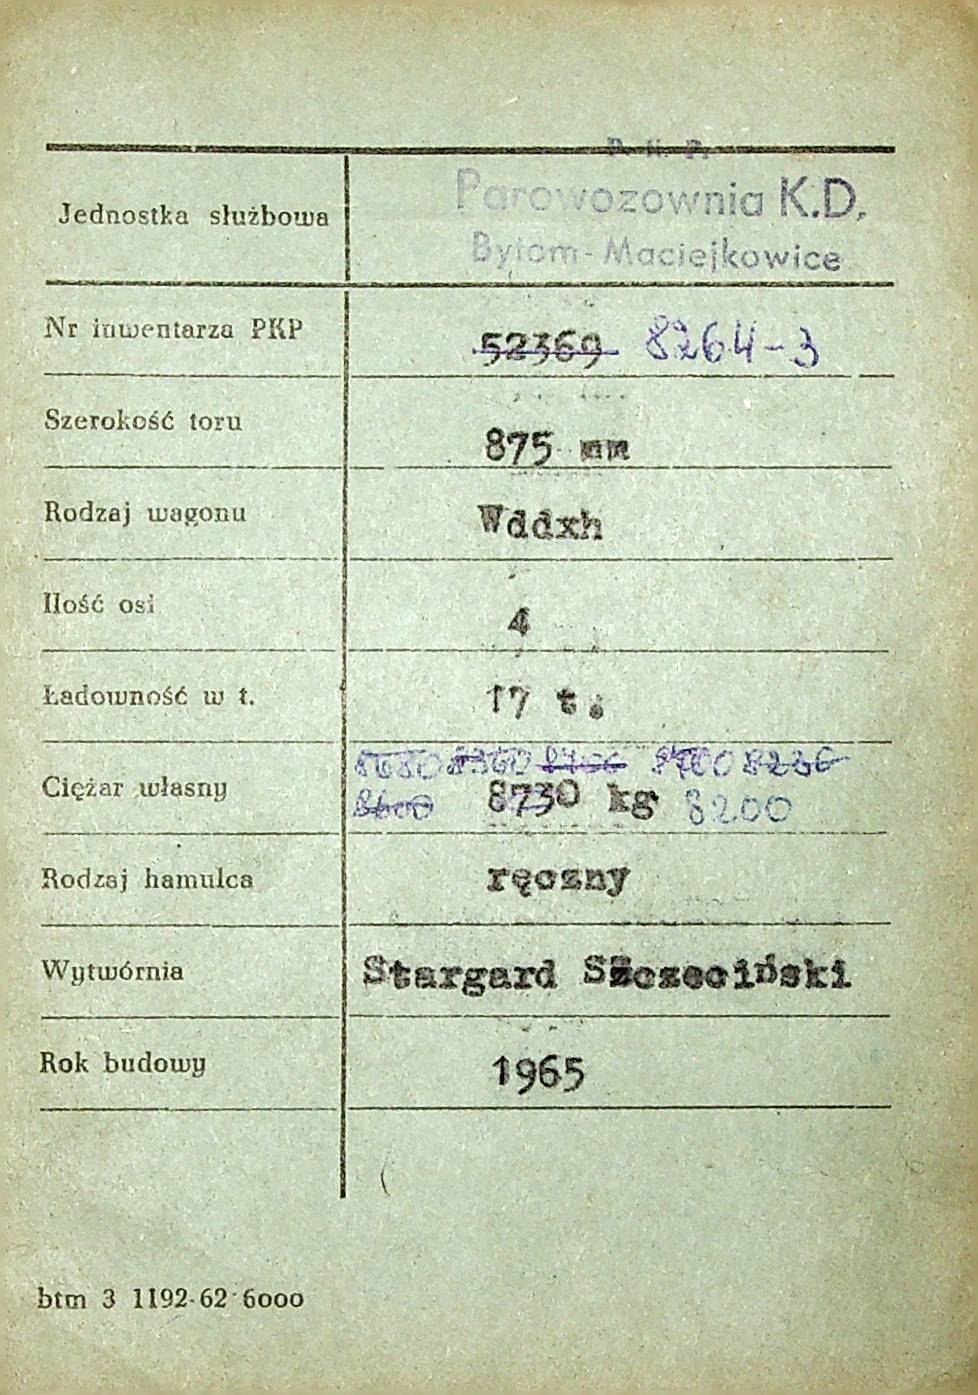 P. K. P.
Parowozownia K.D.
Jednostka służbowa
Bytom-Maciejkowice
Nr inwentarza PKP 52369 8264-3
Szerokość toru 875 mm
Rodzaj wagonu Wddxh
Ilość osi 4
Ładowność w t. 17 t.
8200
Ciężar własny 8730 kg 8200
Rodzaj hamulca ręczny
Wytwórnia Stargard Szczeciński
Rok budowy 1965
btm 3 1192-62 6000